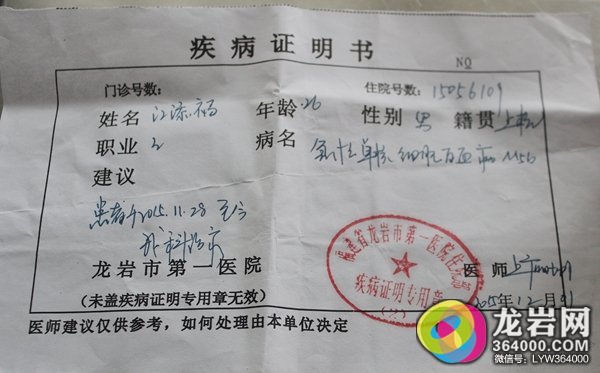 疾病证明书
NQ
门诊号数： 住院号数：15056109
姓名 江添福 年龄 26 性别 男 籍贯 上杭
职业 工 病名 急性单核细胞白血病 M5b
建议
患者于2015.11.28 至今
我科治疗
龙岩市第一医院 医师
（未盖疾病证明专用章无效） 2015年12月31
医师建议仅供参考，如何处理由本单位决定
福建省龙岩市第一医院住院部
疾病证明专用章
(2)
龙岩网
364000.COM
微信号：LYW364000